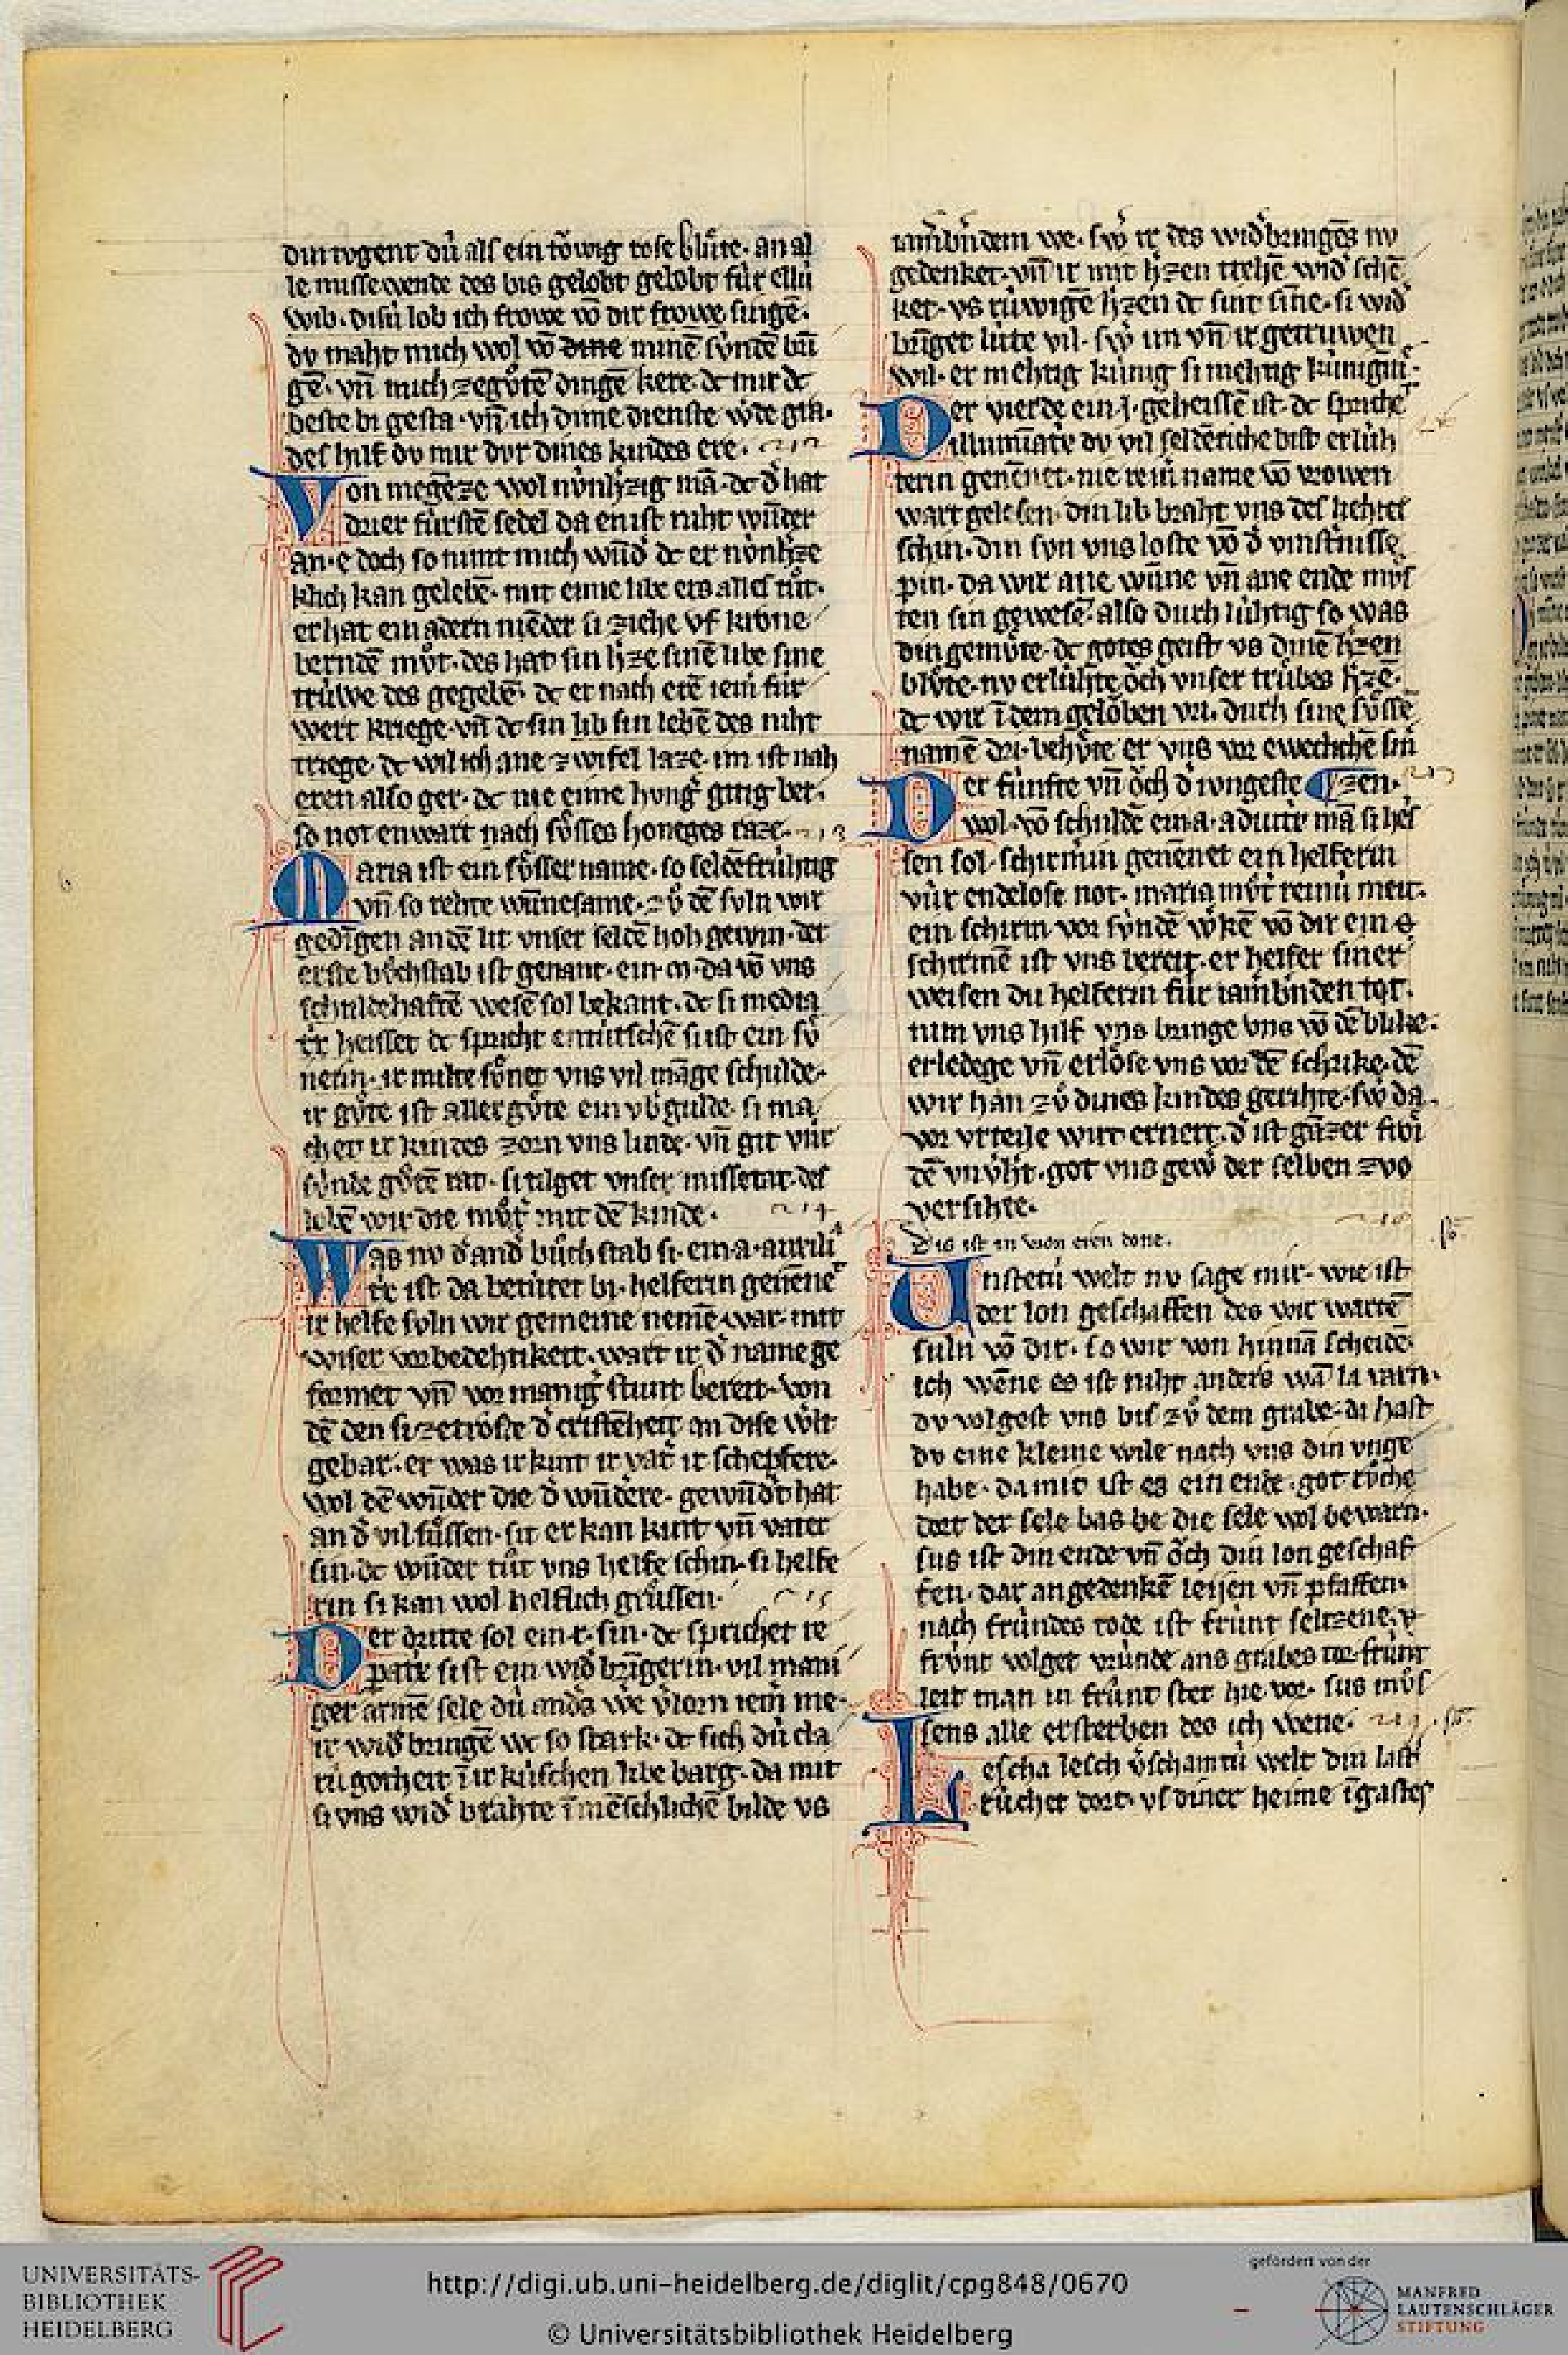 din tvgent dú als ein to͑wig rose blu͑te. an al
le missewende des bis gelobt gelobt fúr ellú
wib. disú lob ich frowe vō dir frowe singē.
dv maht mich wol vō dine minē súndē brī
gē. vn̄ mich zegůtē dingē kere. dc mir dc
beste bi gesta. vn̄ ich dime dienste w̾de gra.
des hilf dv mir dvr dines kindes ere.
Von megēze wol nv́nh̾zig mā. dc d̾ hat
drier fúrstē sedel da en ist niht wūder
an. e doch so nimt mich wūd̾ dc er nv́nh̾ze
klich kan gelebē. mit eime libe ers alles tůt.
er hat ein adern niēder si ziehe vf krone
berndē můt. des hat sin h̾ze sinē libe sine
trúwe des gegebē. dc er nach erē iem̾ fúr
wert kriege. vn̄ dc sin lib sin lebē des niht
triege. dc wil ich ane zwifel laze. im ist nah
eren also ger. dc nie eime hvng̾ging ber.
so not enwart nach sůsses honeges raze.
Maria ist ein sůsser name. so seldēfrúhtig
vn̄ so rehte wūnesame. zů dē svln wir
gedīgen an dē lit vnser seldē hoh gewin. der
erste bůchstab ist genant. ein m. da vō vns
schuldehaftē wesē sol bekant. dc si media
tr̾ heisset dc spricht entútschē si ist ein sů
nerin. ir milte sůnet vns vil māge schulde.
ir gůte ist aller gůte ein vb̾gulde. si ma
chet ir kindes zorn vns linde. vn̄ git vúr
súnde gůtē rat. si tilget vnser missetat. des
lobē wir die můt̾ mit dē kinde.
Was nv d̾ and̾ bůchstab si. ein a. auxili
tr̾ ist da betútet bi. helferin genēne
ir helfe svln wir gemeine nemē war. mit
wiser vorbedehtikeit. wart ir d̾ name ge
formet vn̄ vor manig̾ stunt bereit. von
dē den si zetroste d̾ cristēheit an dise w̾lt
gebar. er was ir kint ir vat̾ ir schepfere.
wol dē wūder die d̾ wūdere. gewūd̾t hat
an d̾ vil sůssen. sit er kan kint vn̄ vater
sin. dc wūder tůt vns helfe schin. si helfe
rin si kan wol helflich grůssen.
Der dritte sol ein. r. sin. dc sprichet re
patr̾ si ist ein wid̾bringerin. vil mani
ger armē sele dú and̾s w̾e v̾lorn iem̾ me.
ir wid̾bringē wc so stark. dc sich dú cla
rú gotheit ī ir kúschen libe barg. da mit
si vns wid̾ brahte ī mēschlichē bilde vs
iam̾b̾ndem we. sw̾ ir des wid̾bringēs nv
gedenket. vn̄ ir mit h̾zen trehē wid̾ schē
ket. vs rúwigē h̾zen dc sint sine. si wid̾
brīget lúte vil. sw̾ im vn̄ ir getruwen
wil. er mehtig kúnig si mehtig kúnigin.
Der vierde ein. i. geheissē ist. dc spriche
illumiatr̾ dv vil seldēriche bist erlúh
terin genēnet. nie reiner name vō vrowen
wart gelesen. din lib braht vns des liehtes
schin. din svn vns loste vō d̾ vinst̾nisse
pin. da wir ane wūne vn̄ ane ende můs
ten sin gewesē. also durch lúhtig so was
din gemůte. dc gotes geist vs dinē h̾zen
blůte. nv erlúhte och vnser trúbes h̾ze.
dc wir ī dem geloben vri. durch sine sůsse
namē dri. behůte er vns vor eweclichē sm̾
Der fúnfte vn̄ och d̾ iongeste ¶ zen.
wol. vō schuldē ein. a. adiutr̾ mā si heis
sen sol. schirm̾in genēnet ein helferin
vúr endelose not. maria můt̾ reinú meit.
ein schirm vor súndē w̾kē vō dir ein
schirmē ist vns bereit. er helfer siner
weisen du helferin fúr iam̾b̾nden tot.
nim vns hilf vns bringe vns vō dē blike.
erledege vn̄ erlose vns vor dē schrike. dē
wir han zů dines kindes gerihte. sw̾ da
vor vrteile wirt ernert. d̾ ist gāzer frôi
dē vnv̾h̾t. got vns gew̾ der selben zvo
versihte.
Dis ist in won eren done.
Unstetú welt nv sage mir. wie ist
der lon geschaffen des wir wartē
suln vō dir. so wir von hinnā scheidē.
ich wene es ist niht anders wā la varn.
dv volgest vns bis zů dem grabe. da hast
dv eine kleine wile nach vns din vnge
habe. da mit ist es ein ende. got růche
dort der sele bas be die sele wol bewarn.
sus ist din ende vn̄ och din lon geschaf
fen. dar an gedenkē leijen vn̄ pfaffen.
nach frúndes tode ist frúnt seltzene.
frúnt volget vrúnde ans grabes tor. frúnt
leit man in frúnt stet hie vor. sus můs
sens alle ersterben des ich wene.
Lescha lesch v̾schamtú welt din last̾
rúchet dort. vs diner heime ī gastes
UNIVERSITÄTS-
BIBLIOTHEK
HEIDELBERG
http://digi.ub.uni-heidelberg.de/diglit/cpg848/0670
© Universitätsbibliothek Heidelberg
gefördert von der
MANFRED
LAUTENSCHLÄGER
STIFTUNG